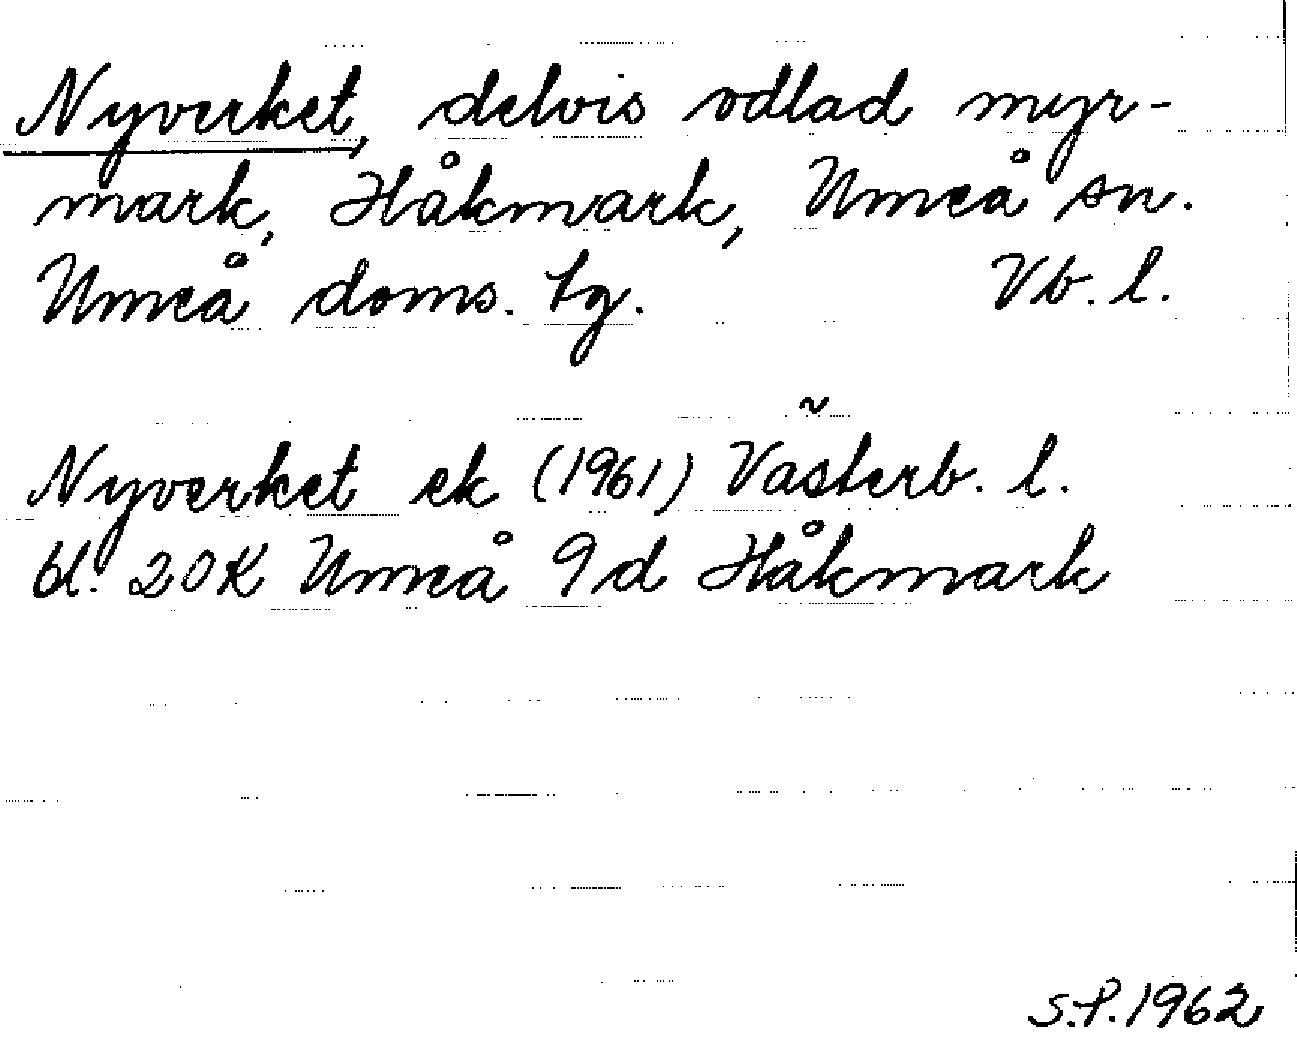 Nyverket, delvis odlad myr-
mark, Håkmark, Umeå sn.
Umeå doms. tg. Vb. l.
Nyverket ek (1961) Västerb. l.
bl. 20K Umeå 9d Håkmark
S.P. 1962